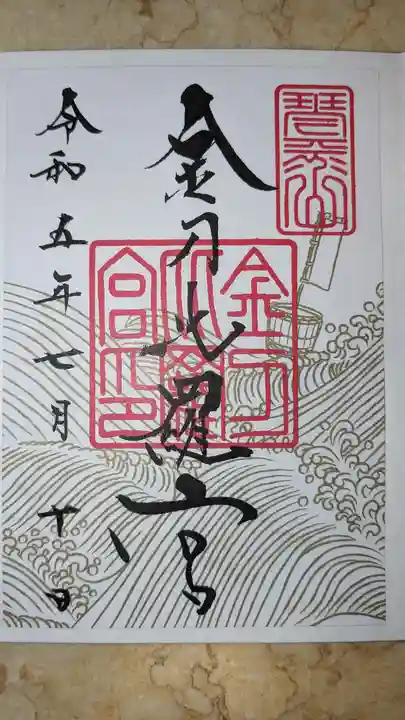 琴平山
金刀比羅宮
金刀比羅宮印
令和五年七月十日